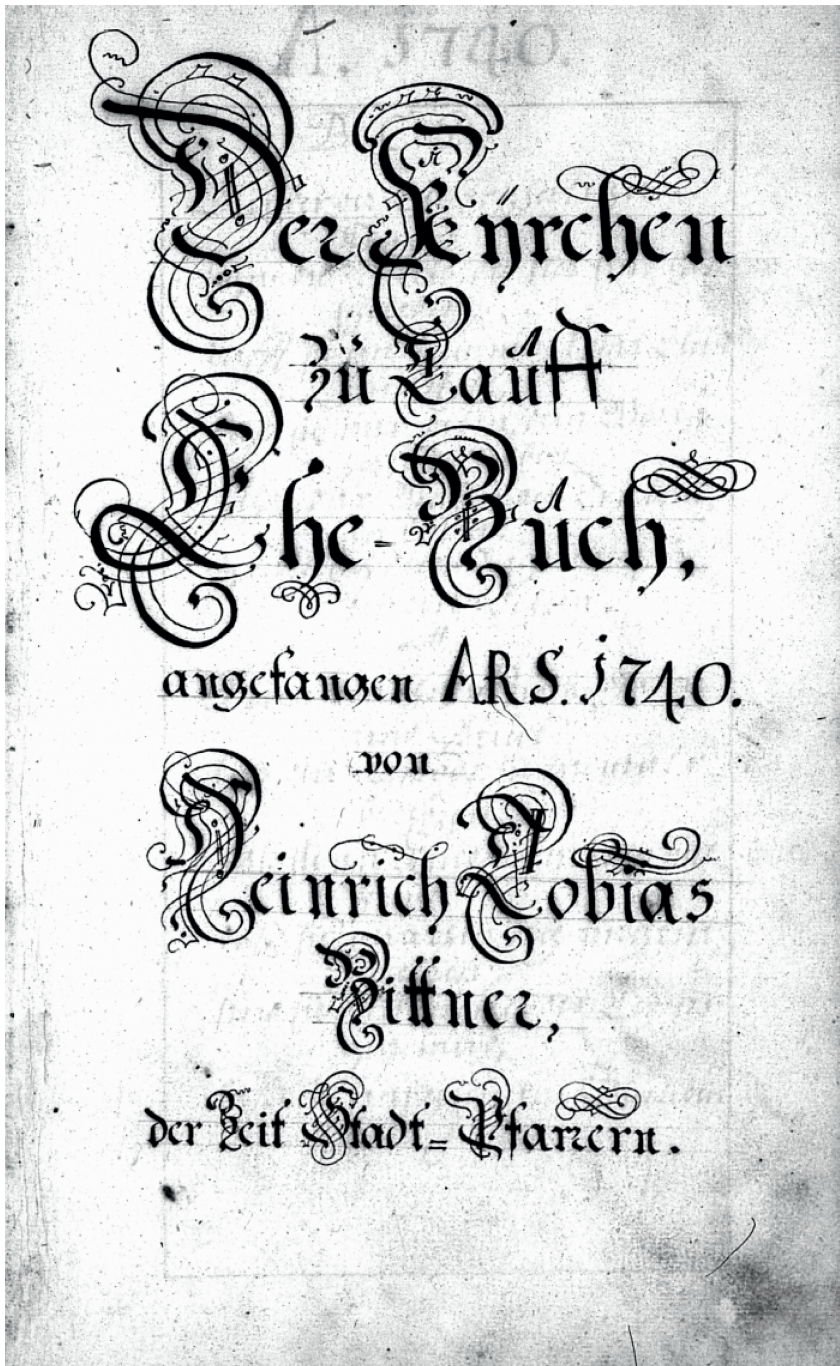 A. 1740.
Der Kÿrchen
zü Lauff
Ehe-Bŭch,
angefangen ARS. 1740.
von
Heinrich Tobias
Bittner,
der Zeit Stadt=Pfarrern.